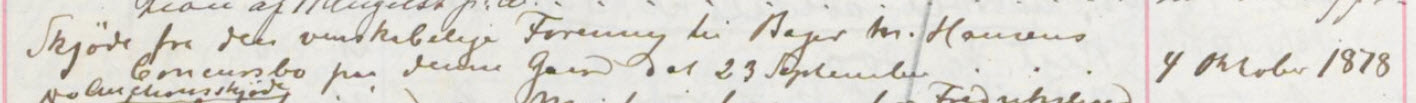 Skjøde fra den venskabelige Forening til Bager M. Hansens
Concursbo paa denne Gaard dat 23 September . . . 4 Oktober 1878